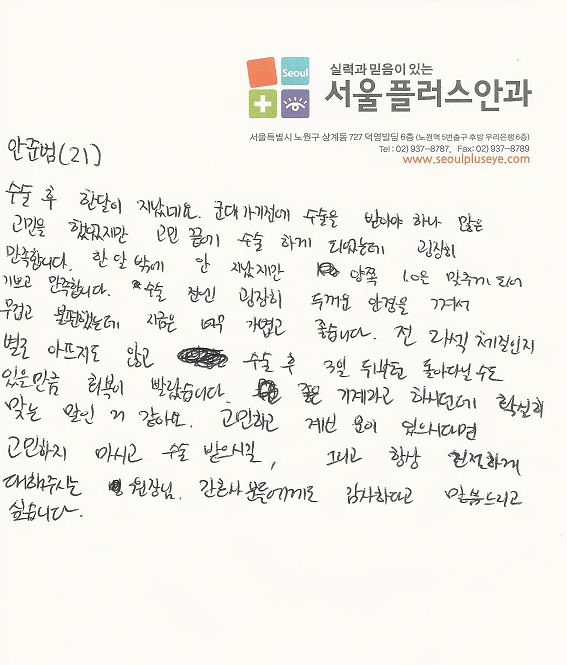 Seoul
실력과 믿음이 있는
서울플러스안과
서울특별시 노원구 상계동 727 덕영빌딩 6층 (노원역 5번출구 후방 우리은행 6층)
Tel : 02) 937-8787,  Fax: 02) 937-8789
www.seoulpluseye.com
안준범(21)
수술 후 한달이 지났네요. 군대가기전에 수술을 받아야 하나 많은
고민을 했었지만 고민 끝에 수술 하게 되었는데 굉장히
만족합니다. 한달 밖에 안 지났지만 양쪽 1.0은 맞추게 되어
기쁘고 만족합니다. 수술 전엔 굉장히 두꺼운 안경을 껴서
무겁고 불편했는데 지금은 너무 가볍고 좋습니다. 전 라섹 체질인지
별로 아프지도 않고 수술 후 3일 뒤부턴 돌아다닐 수도
있을만큼 회복이 빨랐습니다. 좋은 기계라고 하시던데 확실히
맞는 말인 거 같아요. 고민하고 계신 분이 있으시다면
고민하지 마시고 수술 받으시길, 그리고 항상 친절하게
대해주시는 원장님. 간호사분들에게도 감사하다고 말씀드리고
싶습니다.